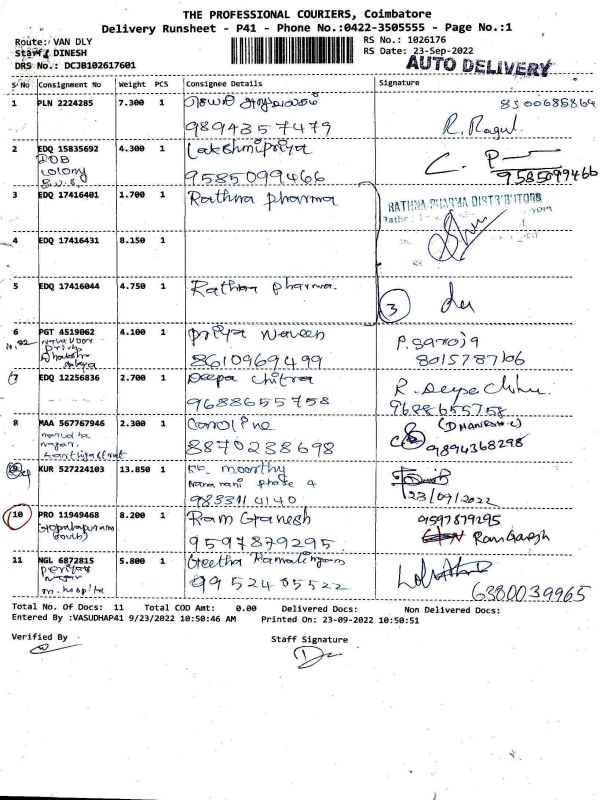 THE PROFESSIONAL COURIERS, Coimbatore
Delivery Runsheet - P41 - Phone No.:0422-3505555 - Page No.:1
Route: VAN DLY
RS No.: 1026176
Staff: DINESH
RS Date: 23-Sep-2022
DRS No.: DCJB102617601
AUTO DELIVERY
S No Consignment No Weight PCS Consignee Details Signature
1 PLN 2224285 7.300 1
8300685864
9894357479
R. Ragul
2 EDQ 15835692 4.300 1 Lakshmipriya
colony
9585099466
C. P
9585099466
3 EDQ 17416401 1.700 1 Rathna pharma
RATHNA PHARMA DISTRIBUTORS
4 EDQ 17416431 8.150 1
5 EDQ 17416044 4.750 1 Rathna pharma.
3
6 PGT 4519062 4.100 1 priya Naveen
P. Saroja
8610969499
8015787106
7 EDQ 12256836 2.700 1 Deepa chitra
9688655758
9688655758
8 MAA 567767946 2.300 1 Caroline
(DHANESH.C)
nagar.
8870238698
9894368298
9 KUR 527224103 13.850 1 moorthy
phase 4
23/09/2022
10 PRO 11949468 8.200 1 Ram Ganesh
9597879295
Gopalapuram
(South)
9597879295
Ram Ganesh
11 NGL 6872815 5.800 1 Geetha Ramalingam
9952405522
6380039965
Total No. Of Docs: 11 Total COD Amt: 0.00 Delivered Docs: Non Delivered Docs:
Entered By :VASUDHAP41 9/23/2022 10:50:46 AM Printed On: 23-09-2022 10:50:51
Verified By
Staff Signature